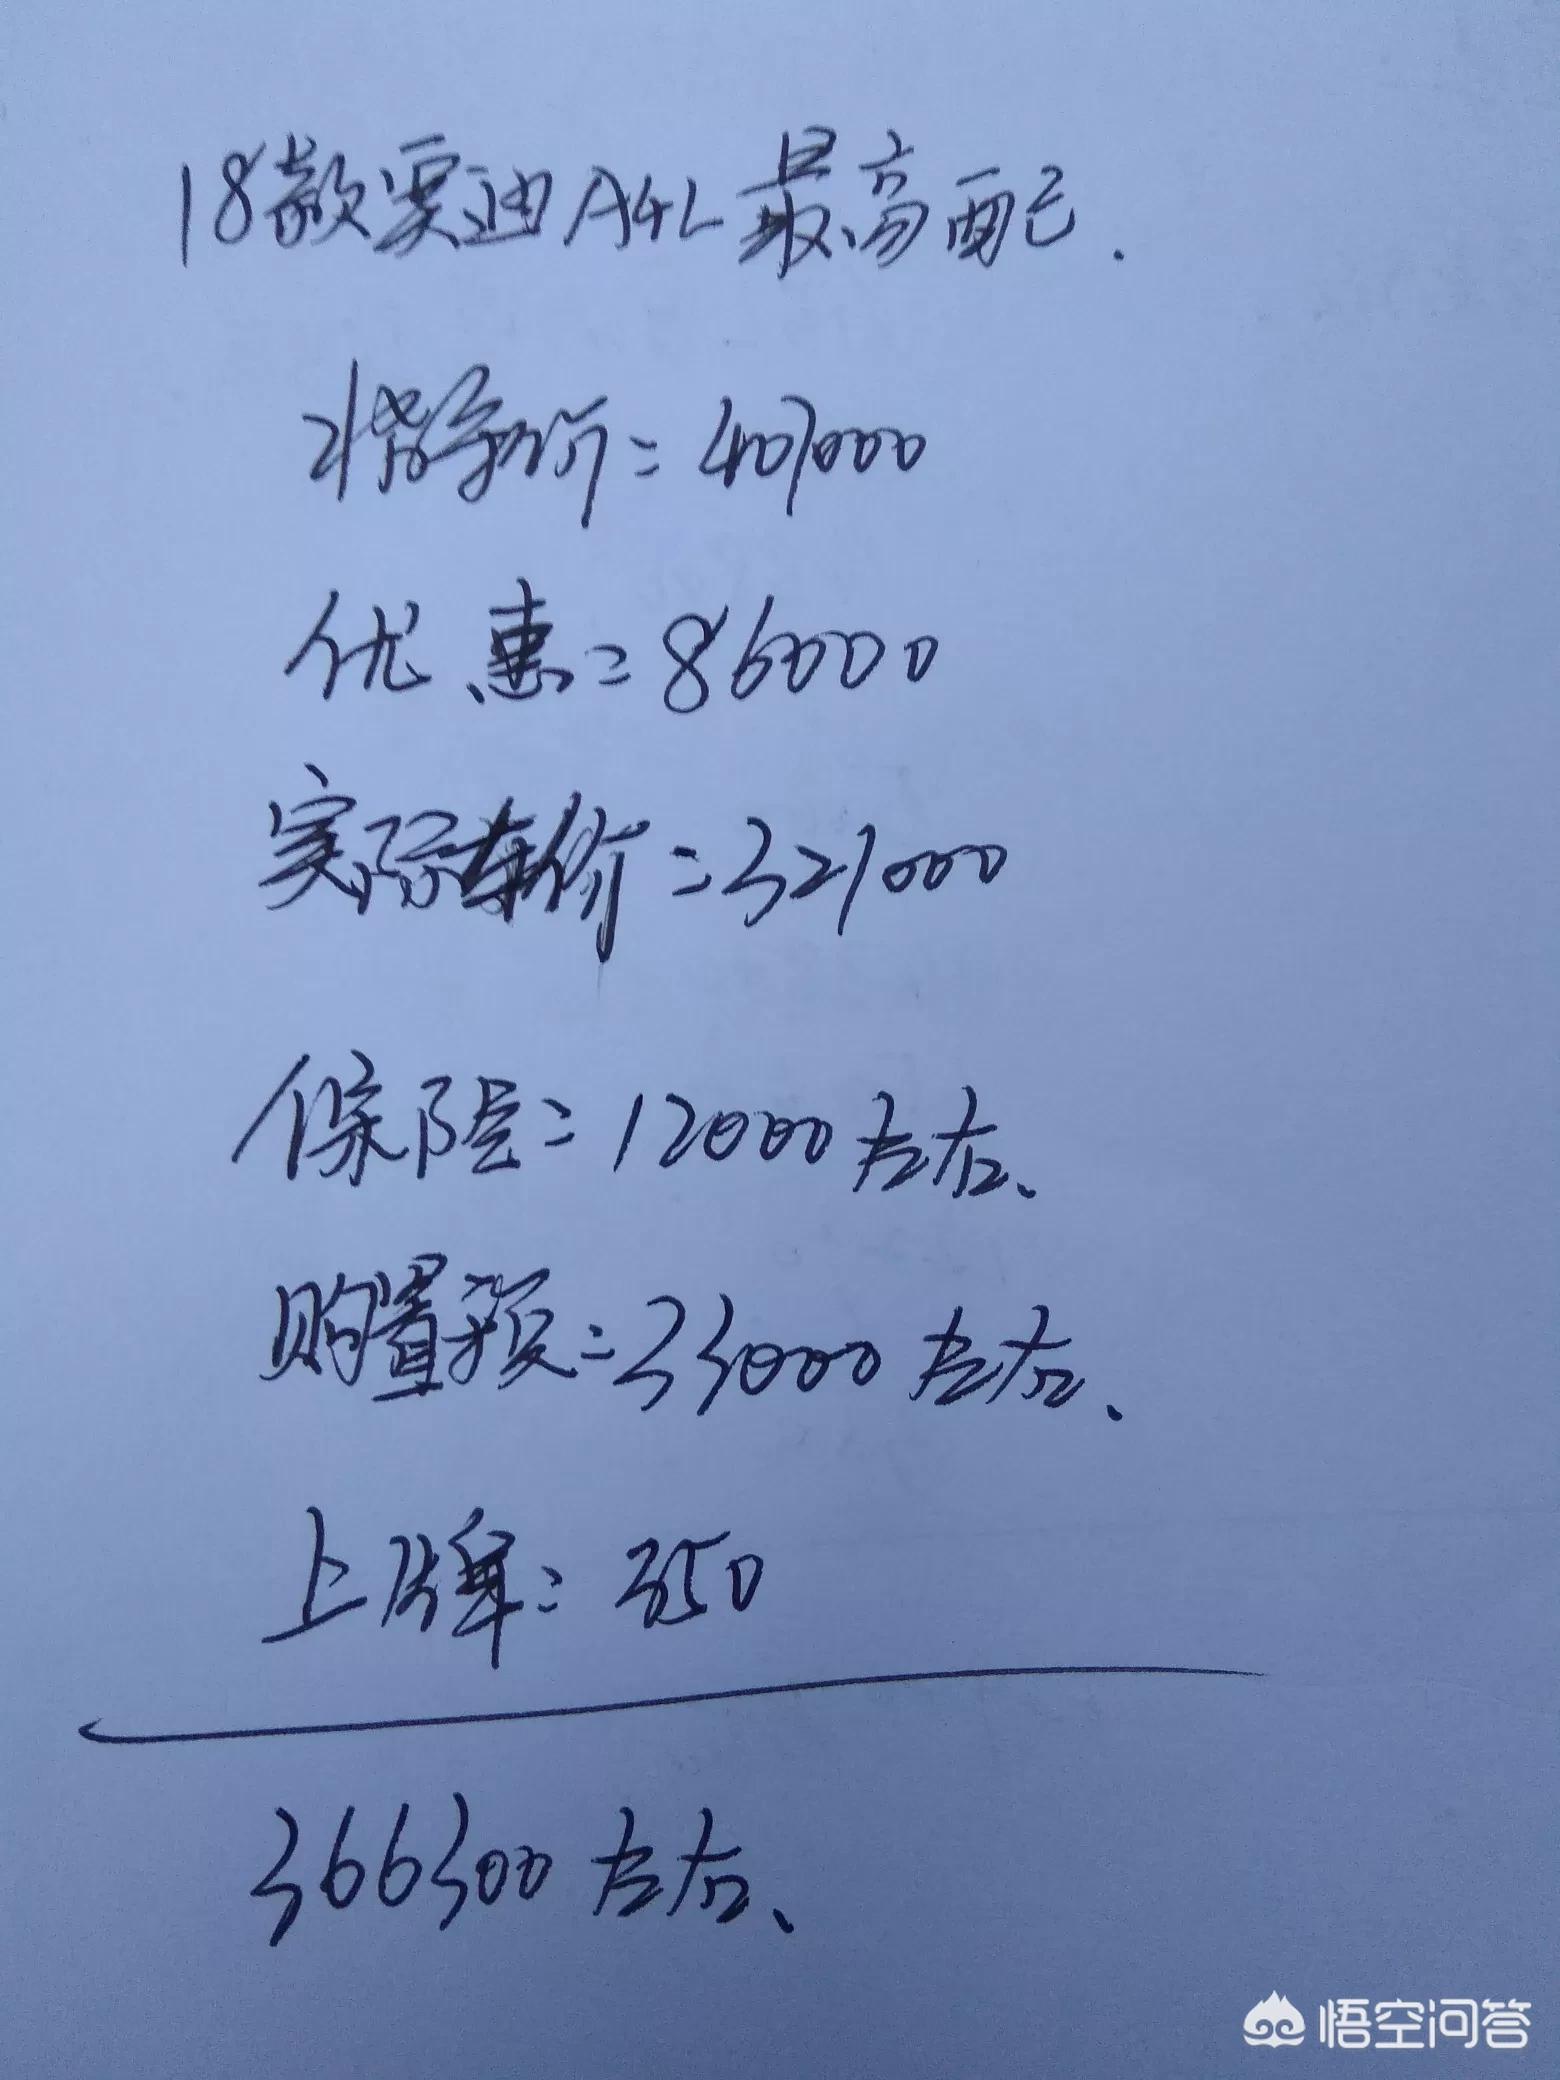 18款奥迪A4L最高配.
指导价=407000
优惠=86000
实际车价=321000
保险=12000左右、
购置税=33000左右、
上牌=350
366300左右、
悟空问答